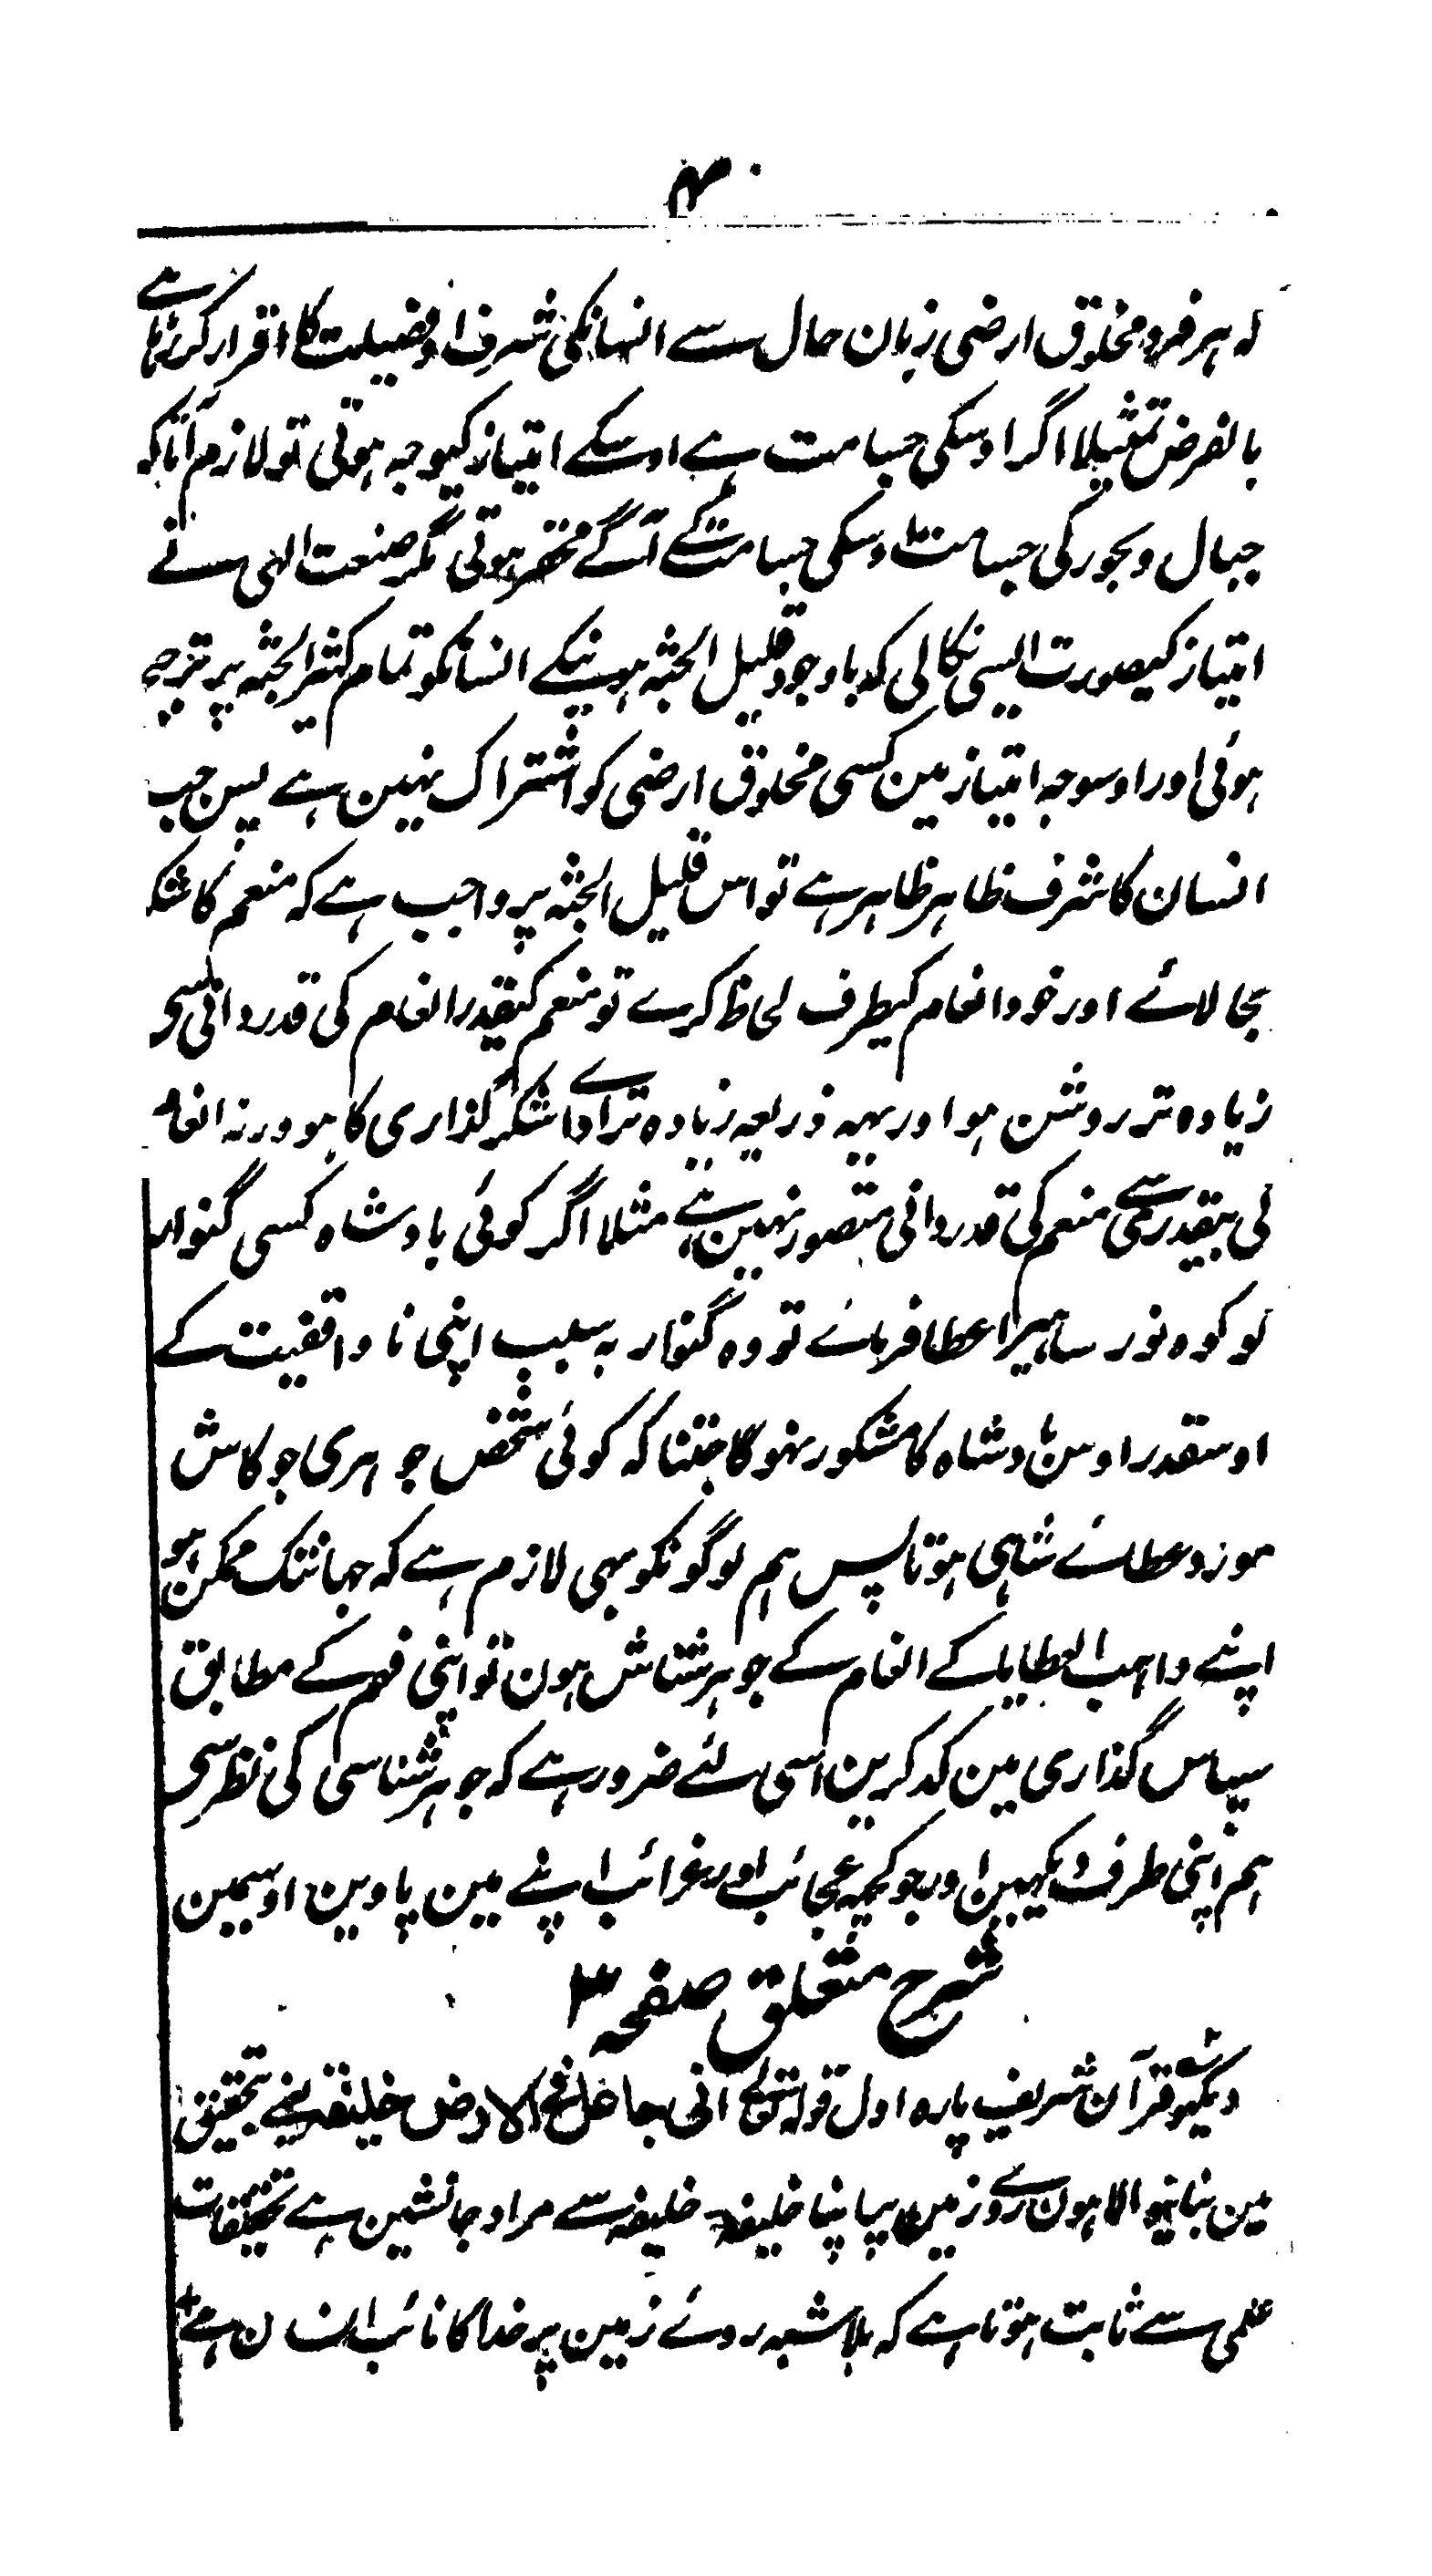 ۴
کہ ہر فرد مخلوق ارضی زبان حال سے انسانکی شرف او فضیلت کا اقرار کرتا ہے
بالفرض تمثیلا اگر اوسکی جسامت ہے اوسکے امتیاز کیوجہ ہوتی تو لازم آتا کہ
جبال و بحور کی جسامت اوسکی جسامت کے آگے مختصر ہوتی مگر صنعت الہی نے
امتیاز کیصورت ایسی نکالی کہ باوجود قلیل الجثہ ہونیکے انسانکو تمام کثیر الجثہ پر ترجیح
ہوئی اور اوسوجہ امتیاز مین کسی مخلوق ارضی کو اشتراک نہین ہے پس جب
انسان کا شرف ظاہر ظاہر ہے تو اس قلیل الجثہ پر واجب ہے کہ منعم کا شکر
بجا لائے اور خود انعام کیطرف لحاظ کرے تو منعم کیقدر انعام کی قدردانی سے
زیادہ تر روشن ہو اور یہہ ذریعہ زیادہ تر اداے شکر گذاری کا ہو ورنہ انعام
کی بیقدری سے منعم کی قدردانی متصور نہین ہے مثلا اگر کوئی بادشاہ کسی گنوار
کو کوہ نور سا ہیرا عطا فرمائے تو وہ گنوار بہ سبب اپنی نا واقفیت کے
اوسقدر اوس بادشاہ کا مشکور نہوگا جتنا کہ کوئی شخص جوہری جو کاش
مورد عطائے شاہی ہوتا پس ہم لوگونکو بھی لازم ہے کہ جہانتک ممکن ہو
اپنے واہب العطایا کے انعام کے جوہر شناش ہون تو اپنی فہم کے مطابق
سپاس گذاری مین کد کرین اسی لئے ضرور ہے کہ جوہر شناسی کی نظر سے
ہم اپنی طرف دیکہین اور جو کچہہ عجائب اور غرائب اپنے مین پاوین اوسمین
شرح متعلق صفحہ ۳
دیکہو قرآن شریف پارہ اول قولہ تع انی جاعل فی الارض خلیفۃ یعنے تحقیق
مین بنانیوالا ہون روے زمین پہ اپنا خلیفہ خلیفہ سے مراد جانشین ہے تحقیقات
علمی سے ثابت ہوتا ہے کہ بلا شبہ روئے زمین پر خدا کا نائب انسان ہے